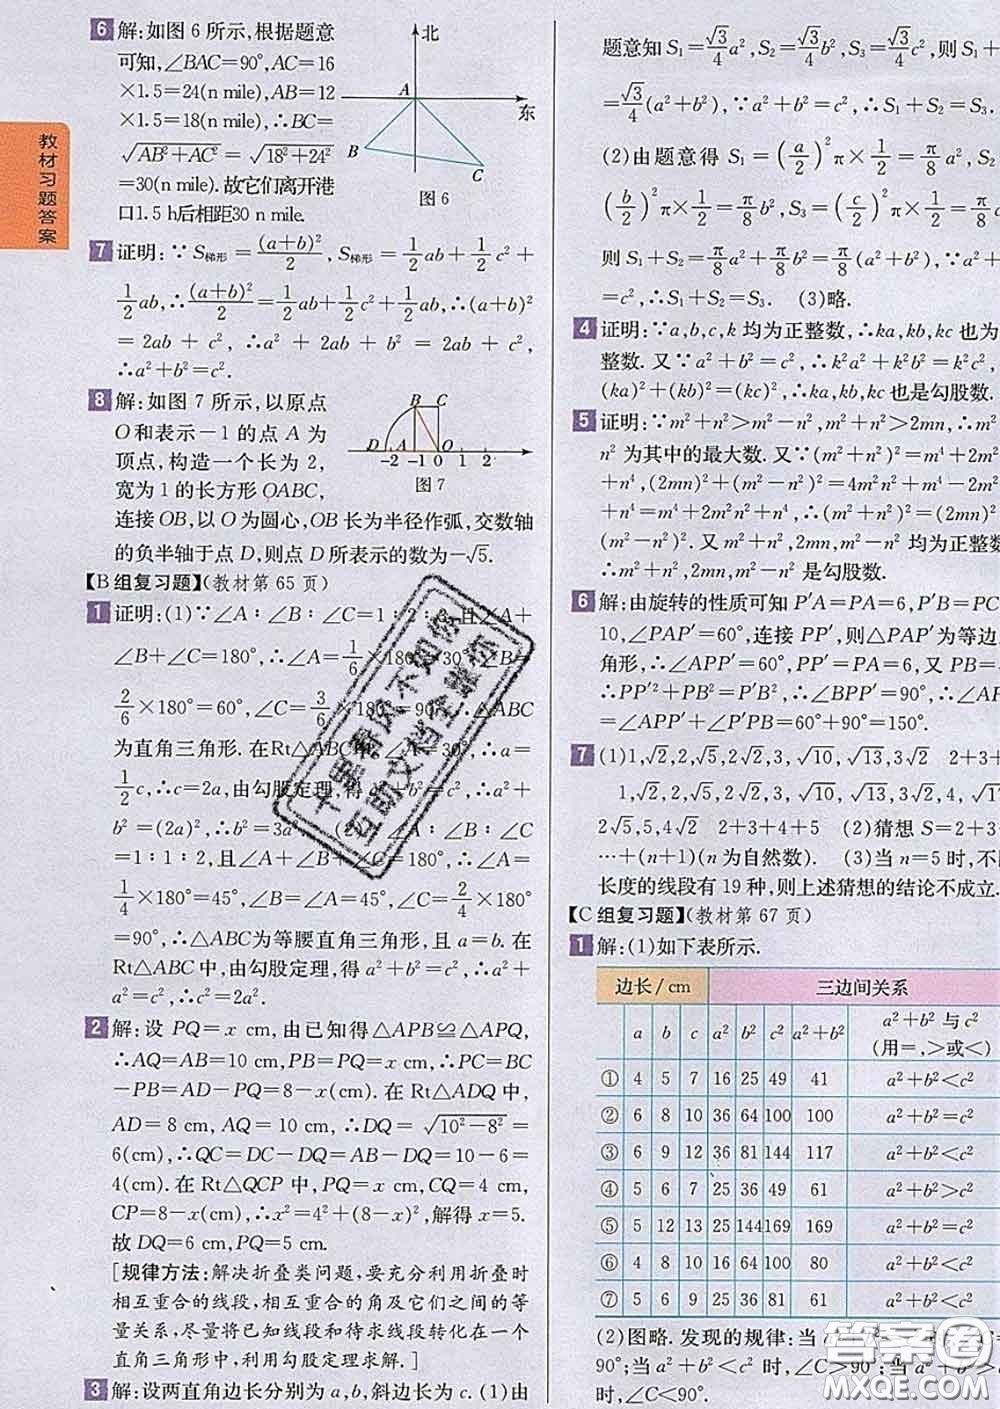 教材习题答案
6 解:如图 6 所示,根据题意
可知,∠BAC=90°,AC=16
×1.5=24(n mile),AB=12
×1.5=18(n mile),∴BC=
√(AB²+AC²)=√(18²+24²)
=30(n mile).故它们离开港
口1.5 h后相距30 n mile.
北
A
东
B
C
图 6
7 证明:∵S梯形=(a+b)²/2,S梯形=1/2ab+1/2c²+
1/2ab,∴(a+b)²/2=1/2ab+1/2c²+1/2ab,∴(a+b)²
=2ab+c²,∴a²+2ab+b²=2ab+c²,
∴a²+b²=c².
8 解:如图 7 所示,以原点
O和表示-1的点 A 为
顶点,构造一个长为 2,
宽为 1 的长方形 OABC,
连接 OB,以 O 为圆心,OB 长为半径作弧,交数轴
的负半轴于点 D,则点 D 所表示的数为-√5.
B C
D A O
-2 -1 0 1 2
图 7
【B 组复习题】(教材第 65 页)
1 证明:(1)∵∠A:∠B:∠C=1:2:3,且∠A+
∠B+∠C=180°,∴∠A=1/6×180°=30°,∠B=
2/6×180°=60°,∠C=3/6×180°=90°,∴△ABC
为直角三角形.在Rt△ABC中,∠A=30°,∴a=
1/2c,∴c=2a,由勾股定理,得a²+b²=c²,∴a²+
b²=(2a)²,∴b²=3a². (2)∵∠A:∠B:∠C
=1:1:2,且∠A+∠B+∠C=180°,∴∠A=
1/4×180°=45°,∠B=∠A=45°,∠C=2/4×180°
=90°,∴△ABC为等腰直角三角形,且 a=b.在
Rt△ABC 中,由勾股定理,得a²+b²=c²,∴a²+
a²=c²,∴c²=2a².
2 解:设 PQ=x cm,由已知得△APB≌△APQ,
∴AQ=AB=10 cm,PB=PQ=x cm,∴PC=BC
-PB=AD-PQ=8-x(cm).在 Rt△ADQ 中,
AD=8 cm,AQ=10 cm,∴DQ=√(10²-8²)=
6(cm),∴QC=DC-DQ=AB-DQ=10-6=
4(cm).在 Rt△QCP 中,PQ=x cm,CQ=4 cm,
CP=8-x(cm),∴x²=4²+(8-x)²,解得 x=5.
故 DQ=6 cm,PQ=5 cm.
[规律方法:解决折叠类问题,要充分利用折叠时
相互重合的线段,相互重合的角及它们之间的等
量关系,尽量将已知线段和待求线段转化在一个
直角三角形中,利用勾股定理求解.]
3 解:设两直角边长分别为 a,b,斜边长为 c.(1)由
题意知 S₁=√3/4a²,S₂=√3/4b²,S₃=√3/4c²,则 S₁+
=√3/4(a²+b²),∵a²+b²=c²,∴S₁+S₂=S₃.
(2)由题意得 S₁=(a/2)²π×1/2=π/8a²,S₂
(b/2)²π×1/2=π/8b²,S₃=(c/2)²π×1/2=π/8
则 S₁+S₂=π/8a²+π/8b²=π/8(a²+b²),∵a²+
=c²,∴S₁+S₂=S₃. (3)略.
4 证明:∵a,b,c,k 均为正整数,∴ka,kb,kc也为
整数.又∵a²+b²=c²,∴k²a²+k²b²=k²c²,
(ka)²+(kb)²=(kc)²,∴ka,kb,kc也是勾股数.
5 证明:∵m²+n²>m²-n²,m²+n²>2mn,∴m²
n² 为其中的最大数.又∵(m²+n²)²=m⁴+2m²
+n⁴,(2mn)²+(m²-n²)²=4m²n²+m⁴-2m²
+n⁴=m⁴+2m²n²+n⁴,∴(m²+n²)²=(2mn)
(m²-n²)².又 m²+n²,m²-n²,2mn 均为正整
∴m²+n²,m²-n²,2mn 是勾股数.
6 解:由旋转的性质可知 P′A=PA=6,P′B=PC
10,∠PAP′=60°,连接 PP′,则△PAP′为等边
角形,∴∠APP′=60°,PP′=PA=6,又 PB=
∴PP′²+PB²=P′B²,∴∠BPP′=90°,∴∠AP
=∠APP′+∠P′PB=60°+90°=150°.
7 (1)1,√2,√5,2,2√2 1,√2,√5,2,2√2,3,√10,√13,3√2 2+3+
1,√2,√5,2,2√2,3,√10,√13,3√2,4,
2√5,5,4√2 2+3+4+5 (2)猜想 S=2+3
…+(n+1)(n 为自然数). (3)当 n=5 时,不
长度的线段有 19 种,则上述猜想的结论不成立.
【C 组复习题】(教材第 67 页)
1 解:(1)如下表所示.
边长/cm 三边间关系
a b c a² b² c² a²+b² a²+b² 与 c²
(用=,>或<)
① 4 5 7 16 25 49 41 a²+b²<c²
② 6 8 10 36 64 100 100 a²+b²=c²
③ 6 9 12 36 81 144 117 a²+b²<c²
④ 5 6 7 25 36 49 61 a²+b²>c²
⑤ 5 12 13 25 144 169 169 a²+b²=c²
⑥ 4 8 10 16 64 100 80 a²+b²<c²
⑦ 5 6 9 25 36 81 61 a²+b²<c²
(2)图略.发现的规律:当
90°;当 a²+b²<c² 时,∠C>90°;当
时,∠C<90°.
千里春风不如你
互助文档全靠你
答案圈
MXQE.COM